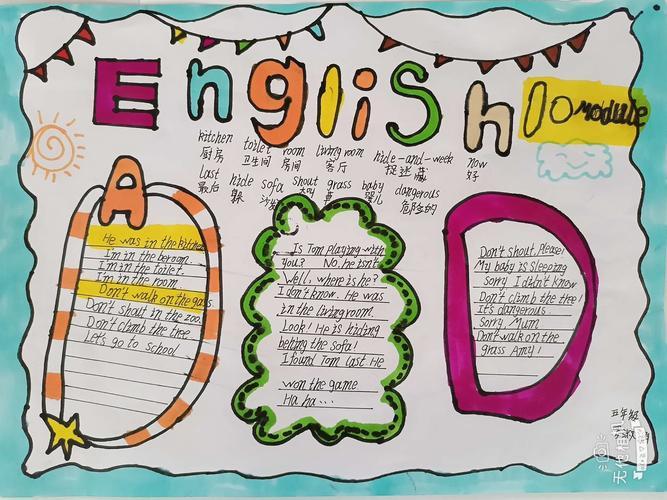 English
10 Module
kitchen toilet room living room hide-and-week now
厨房 卫生间 房间 客厅 捉迷藏 好
last hide sofa shout grass baby dangerous
最后 躲 沙发 大叫 草 婴儿 危险的
A
He was in the kitchen
I'm in the beroon.
I'm in the toilet.
I'm in the room
Don't walk on the gass.
Don't shout in the zoo.
Don't climb the tree
Let's go to school
Is Tom playing with
you? No. he isnt
Well, where is he?
I don't know. He was
in the living room.
Look! He is hiding
behing the sofa!
I found Tom last He
won the game
Ha ha...
D
Don't shout, Please!
My baby is sleeping
Sorry I didn't know
Don't climb the tree!
It's dangerous.
Sorry Mum
Don't walk on the
grass Amy!
五年级
无他相机